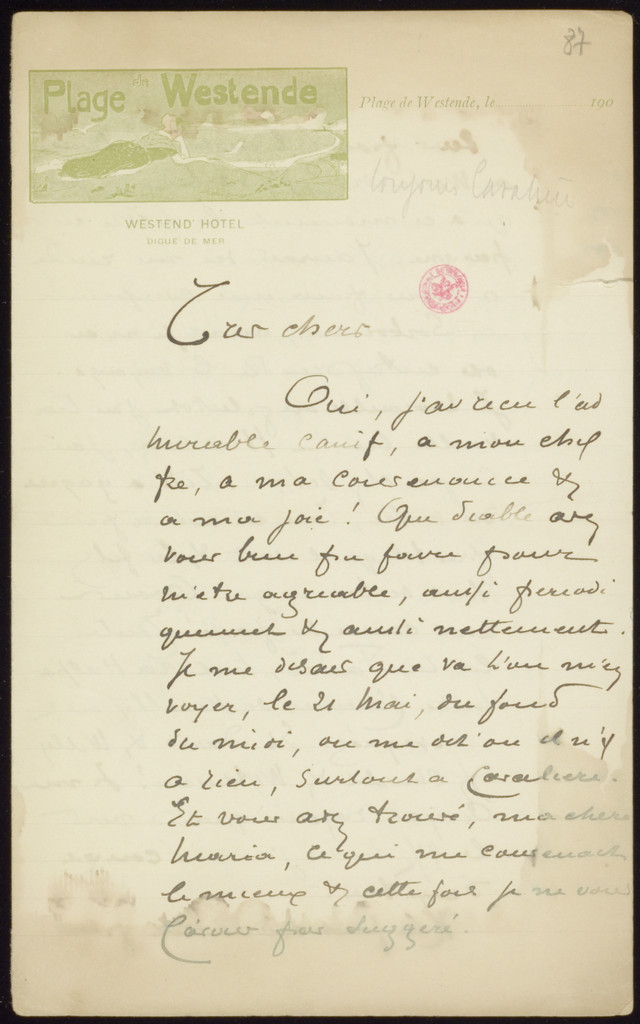 87
Plage de Westende
Plage de Westende, le 190
toujours Cavalière
WESTEND' HOTEL
DIGUE DE MER
Tres chers
Oui, j'ai recu l'ad
mirable canif, a mon chif
fre, a ma convenance &
a ma joie! Que diable avez
vous bien pu faire pour
m'etre agreable, aussi periodi
quement & aussi nettement.
Je me disais que va t'on m'en
voyer, le 21 Mai, du fond
du midi, ou me dit'on il n'y
a rien, surtout a Cavaliere.
Et vous avez trouvé, ma chere
Maria, ce qui me convenait
le mieux & cette fois je ne vous
l'avais pas suggeré.